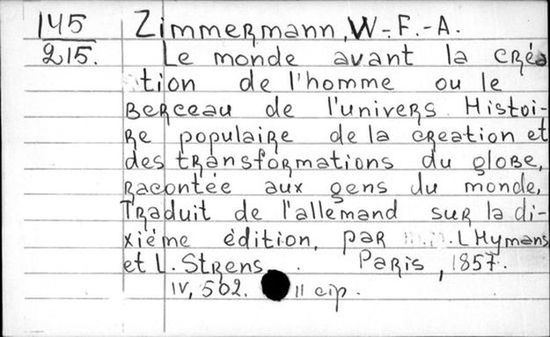 145 Zimmermann, W.-F.-A.
215. Le monde avant la créa
tion de l'homme ou le
Berceau de l'univers. Histoi-
re populaire de la creation et
des transformations du globe,
racontée aux gens du monde,
Traduit de l'allemand sur la di-
xième édition, par L Hymans
et L. Strens. Paris, 1857.
IV, 502. 11 cip.